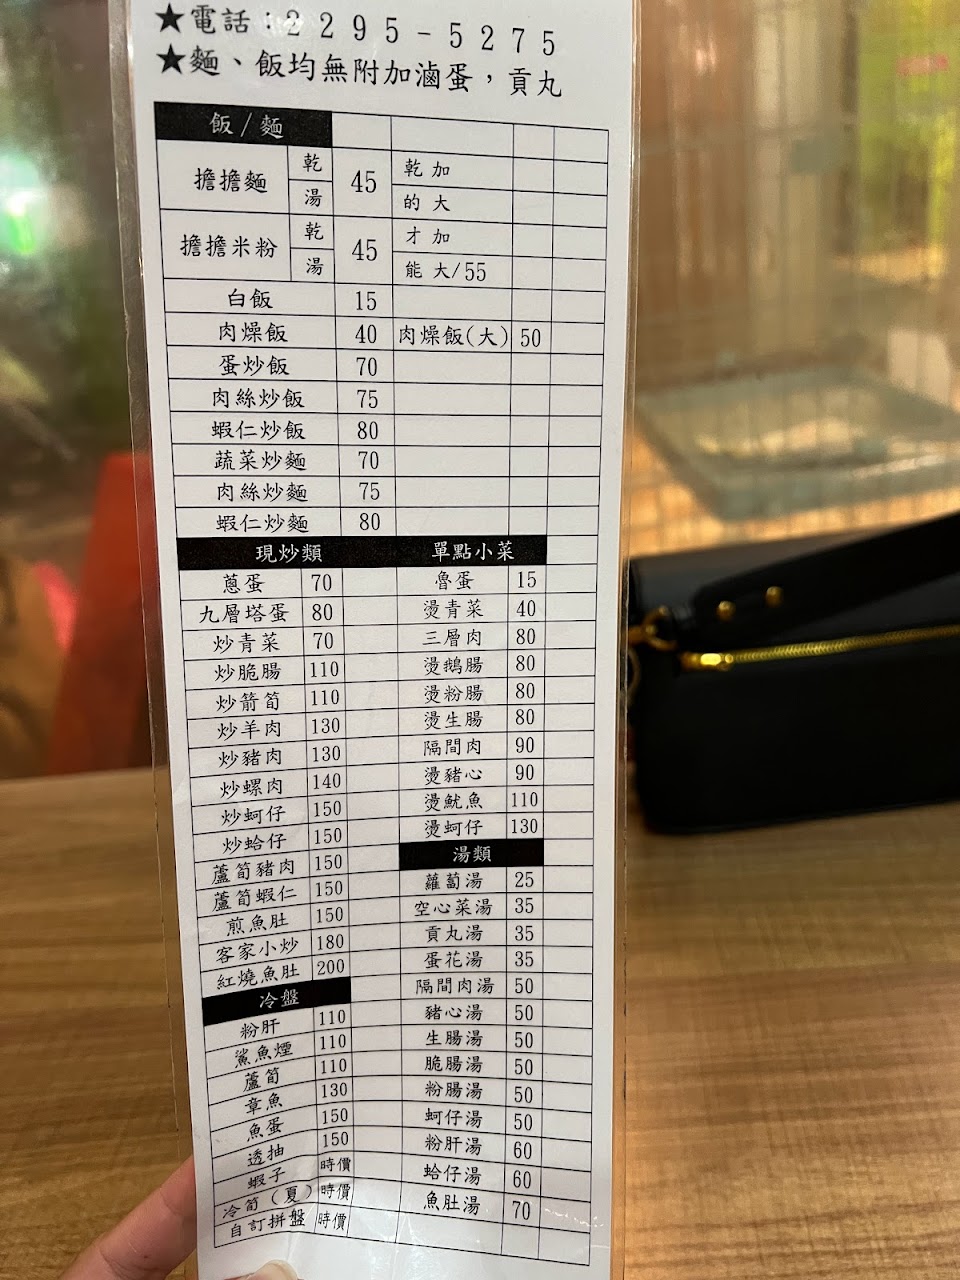 ★電話：2295-5275
★麵、飯均無附加滷蛋，貢丸
飯/麵
擔擔麵 乾 湯 45 乾 加 的 大
擔擔米粉 乾 湯 45 才 加 能 大/55
白飯 15
肉燥飯 40 肉燥飯(大) 50
蛋炒飯 70
肉絲炒飯 75
蝦仁炒飯 80
蔬菜炒麵 70
肉絲炒麵 75
蝦仁炒麵 80
現炒類
蔥蛋 70
九層塔蛋 80
炒青菜 70
炒脆腸 110
炒箭筍 110
炒羊肉 130
炒豬肉 130
炒螺肉 140
炒蚵仔 150
炒蛤仔 150
蘆筍豬肉 150
蘆筍蝦仁 150
煎魚肚 150
客家小炒 180
紅燒魚肚 200
冷盤
粉肝 110
鯊魚煙 110
蘆筍 110
章魚 130
魚蛋 150
透抽 150
蝦子 時價
冷筍（夏） 時價
自訂拼盤 時價
單點小菜
魯蛋 15
燙青菜 40
三層肉 80
燙鵝腸 80
燙粉腸 80
燙生腸 80
隔間肉 90
燙豬心 90
燙魷魚 110
燙蚵仔 130
湯類
蘿蔔湯 25
空心菜湯 35
貢丸湯 35
蛋花湯 35
隔間肉湯 50
豬心湯 50
生腸湯 50
脆腸湯 50
粉腸湯 50
蚵仔湯 50
粉肝湯 60
蛤仔湯 60
魚肚湯 70